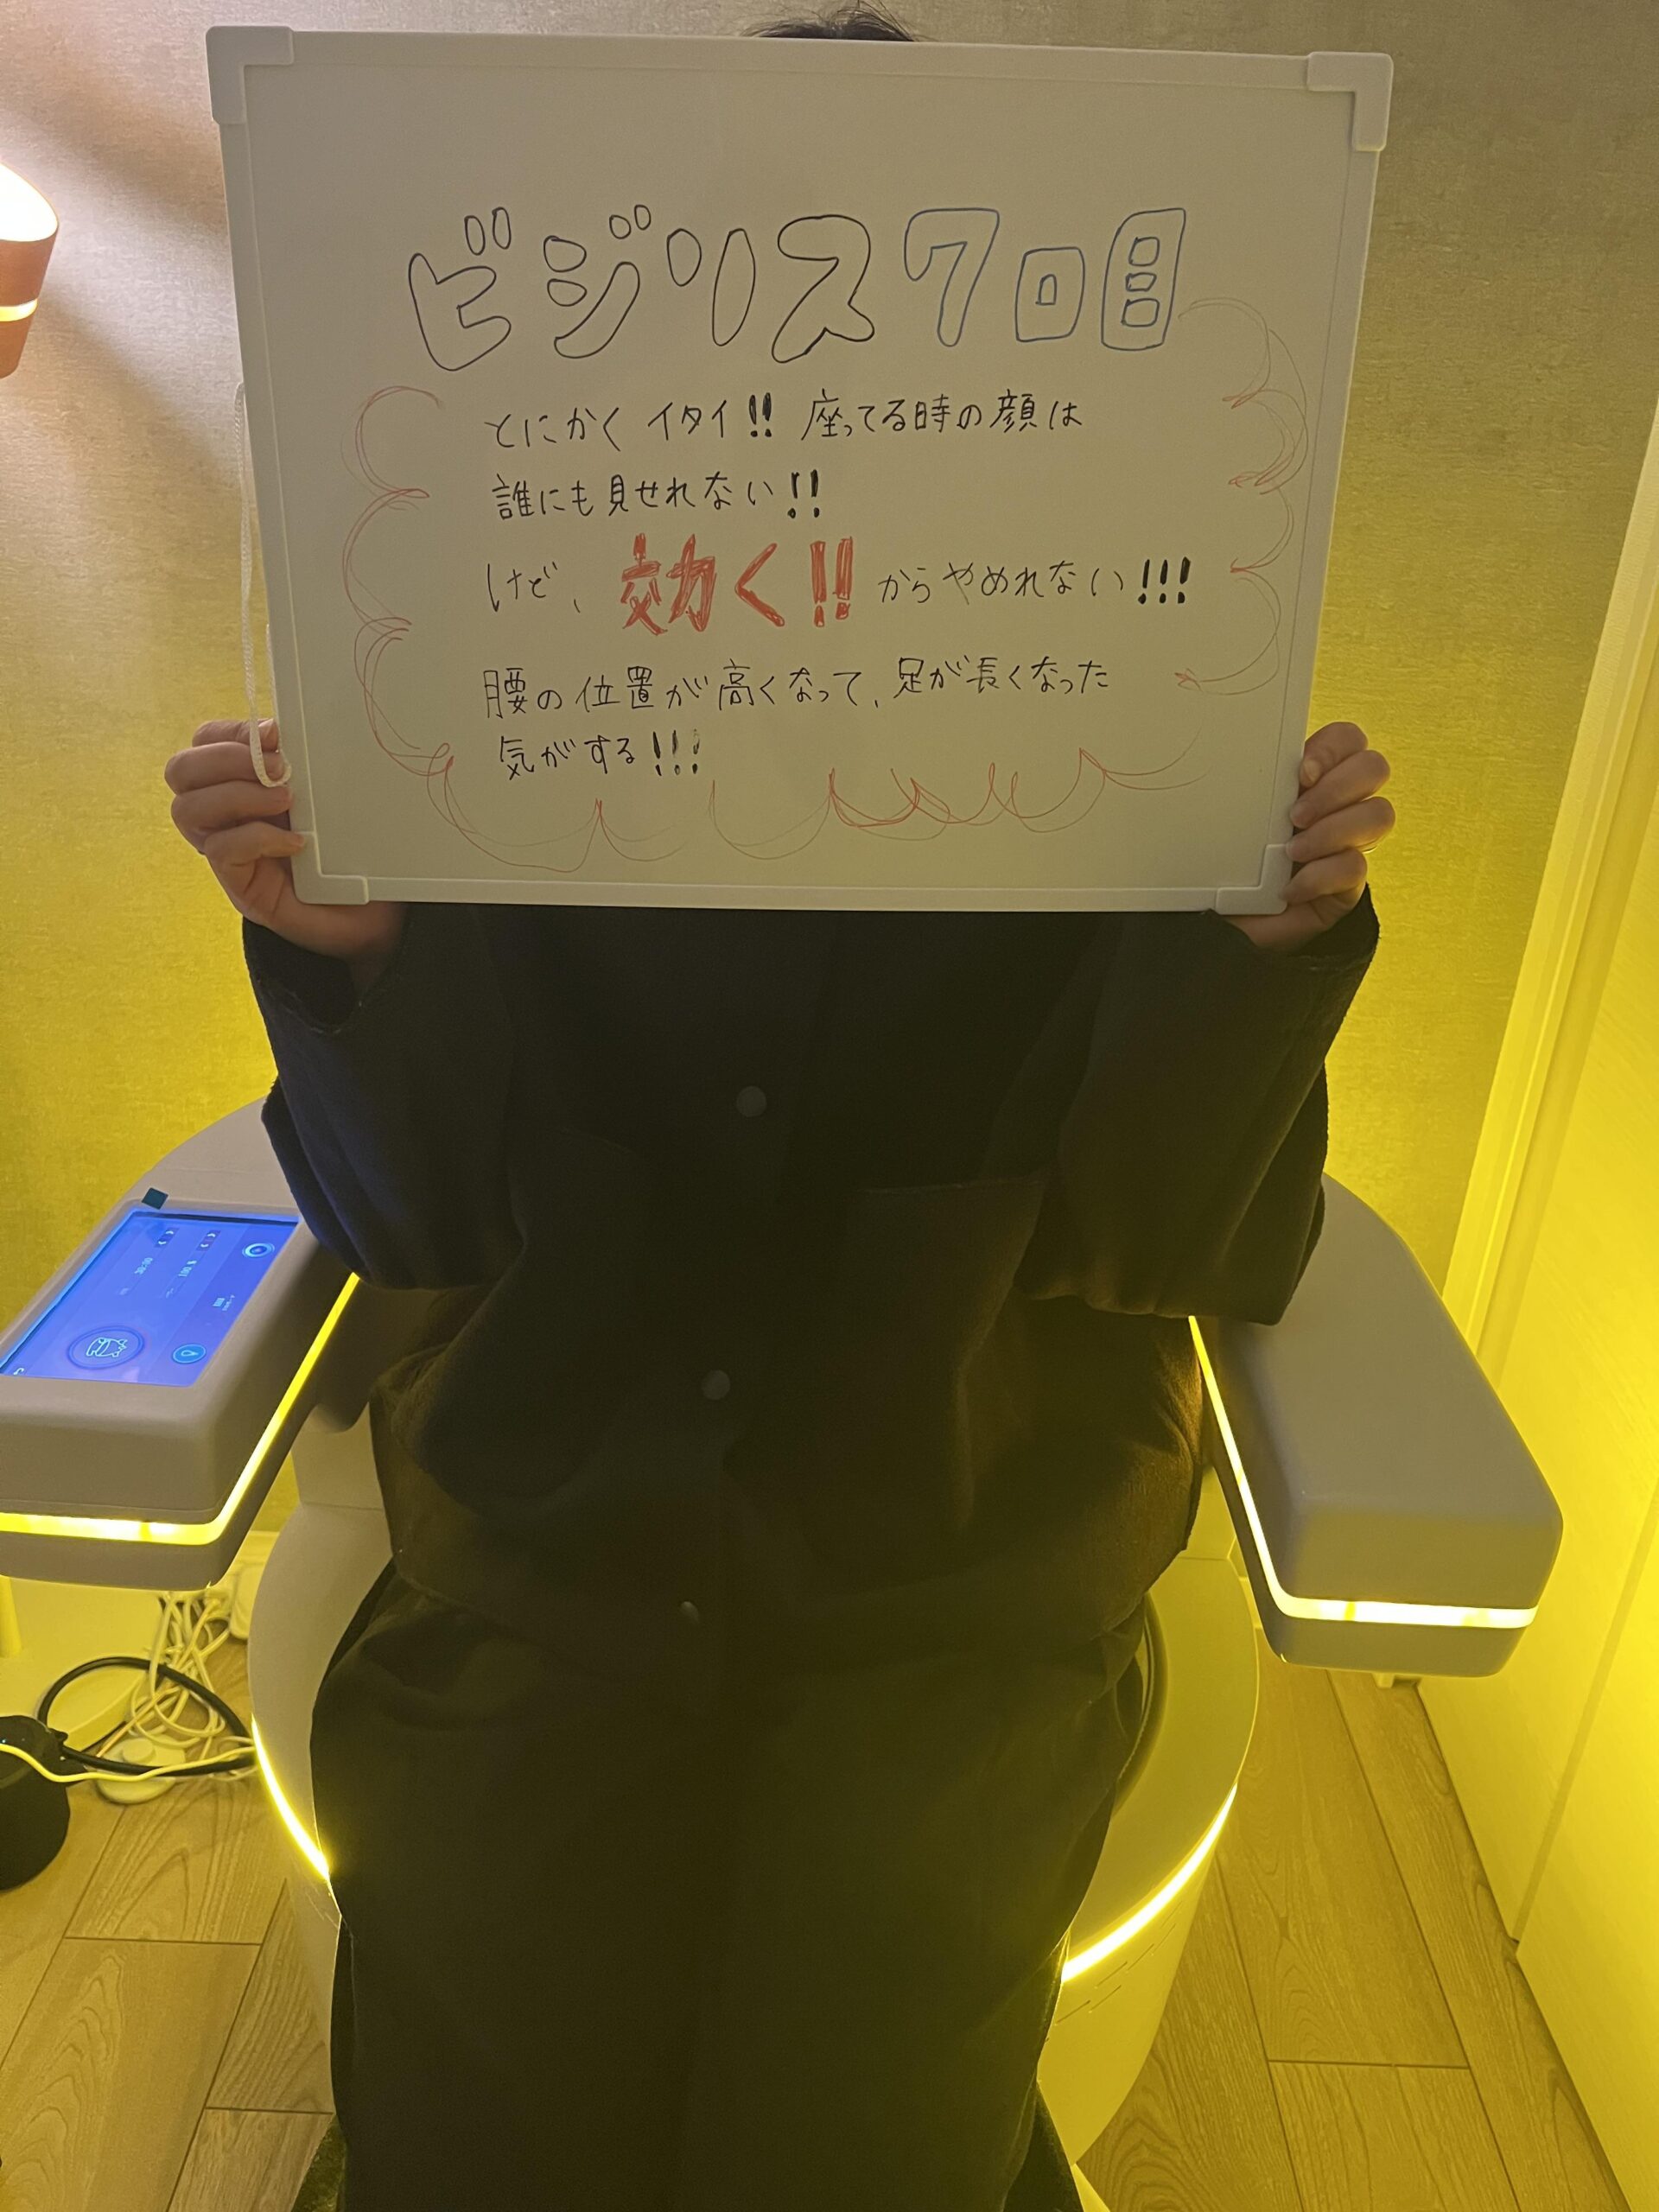 ビジリス7回目
とにかくイタイ!! 座ってる時の顔は
誰にも見せれない!!
けど、効く!!からやめれない!!!
腰の位置が高くなって、足が長くなった
気がする!!!